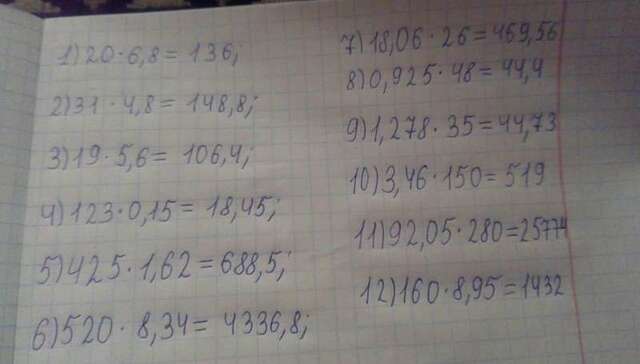 1) 20 · 6,8 = 136;
2) 31 · 4,8 = 148,8;
3) 19 · 5,6 = 106,4;
4) 123 · 0,15 = 18,45;
5) 425 · 1,62 = 688,5;
6) 520 · 8,34 = 4336,8;
7) 18,06 · 26 = 469,56
8) 0,925 · 48 = 44,4
9) 1,278 · 35 = 44,73
10) 3,46 · 150 = 519
11) 92,05 · 280 = 25774
12) 160 · 8,95 = 1432